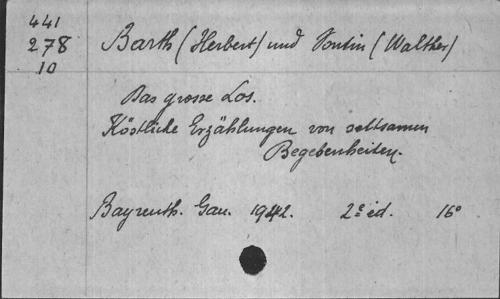 441
278
10
Barth (Herbert) und Pontin (Walther)
Das grosse Los.
Köstliche Erzählungen von seltsamen
Begebenheiten.
Bayreuth. Gau. 1942. 2e ed. 16°